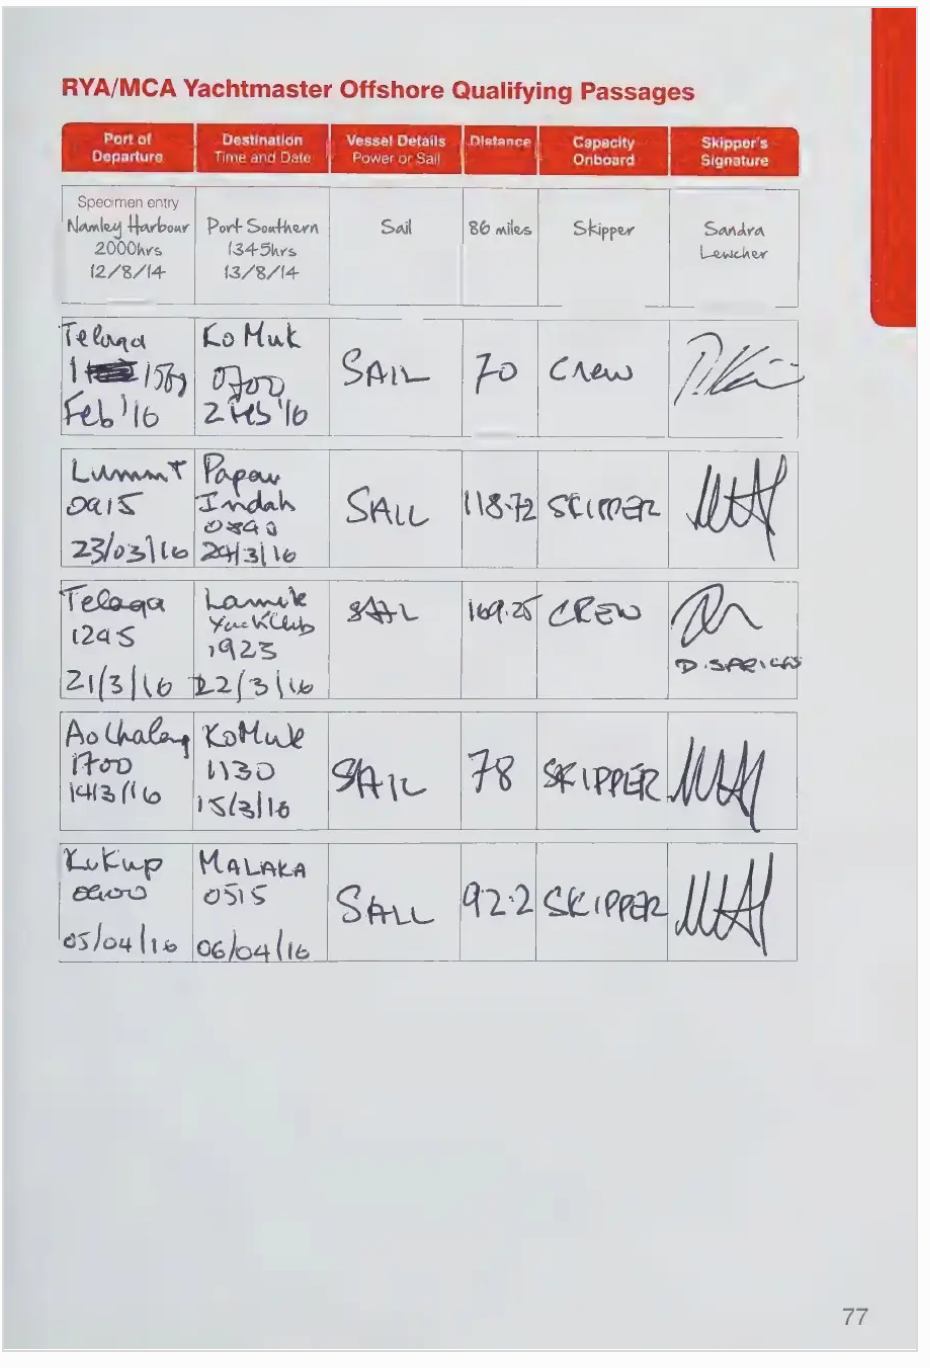 RYA/MCA Yachtmaster Offshore Qualifying Passages
Port of Departure Destination Time and Date Vessel Details Power or Sail Distance Capacity Onboard Skipper's Signature
Specimen entry
Namley Harbour
2000hrs
12/8/14
Port Southern
1345hrs
13/8/14
Sail
86 miles
Skipper
Sandra
Lewcher
Telaga
1
Feb '16
Ko Muk
0700
2 Feb '16
SAIL
70
Crew
Lumut
0915
23/03/16
Indah
24/3/16
SAIL
118.72
SKIPPER
Telaga
1245
21/3/16
1923
22/3/16
SAIL
169.25
CREW
Ao Chalong
1700
14/3/16
Ko Muk
1130
15/3/16
SAIL
78
SKIPPER
Kukup
0900
05/04/16
MALAKA
0515
06/04/16
SAIL
92.2
SKIPPER
77